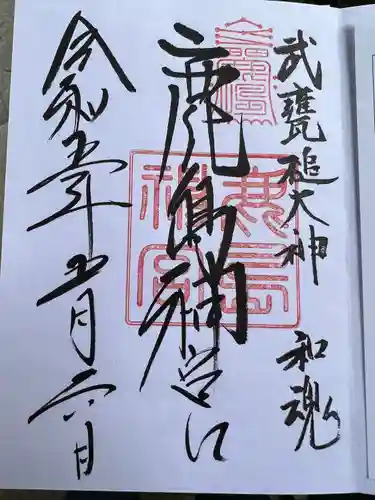 武甕槌大神 和魂
鹿島神宮
令和五年五月六日
鹿島
神宮